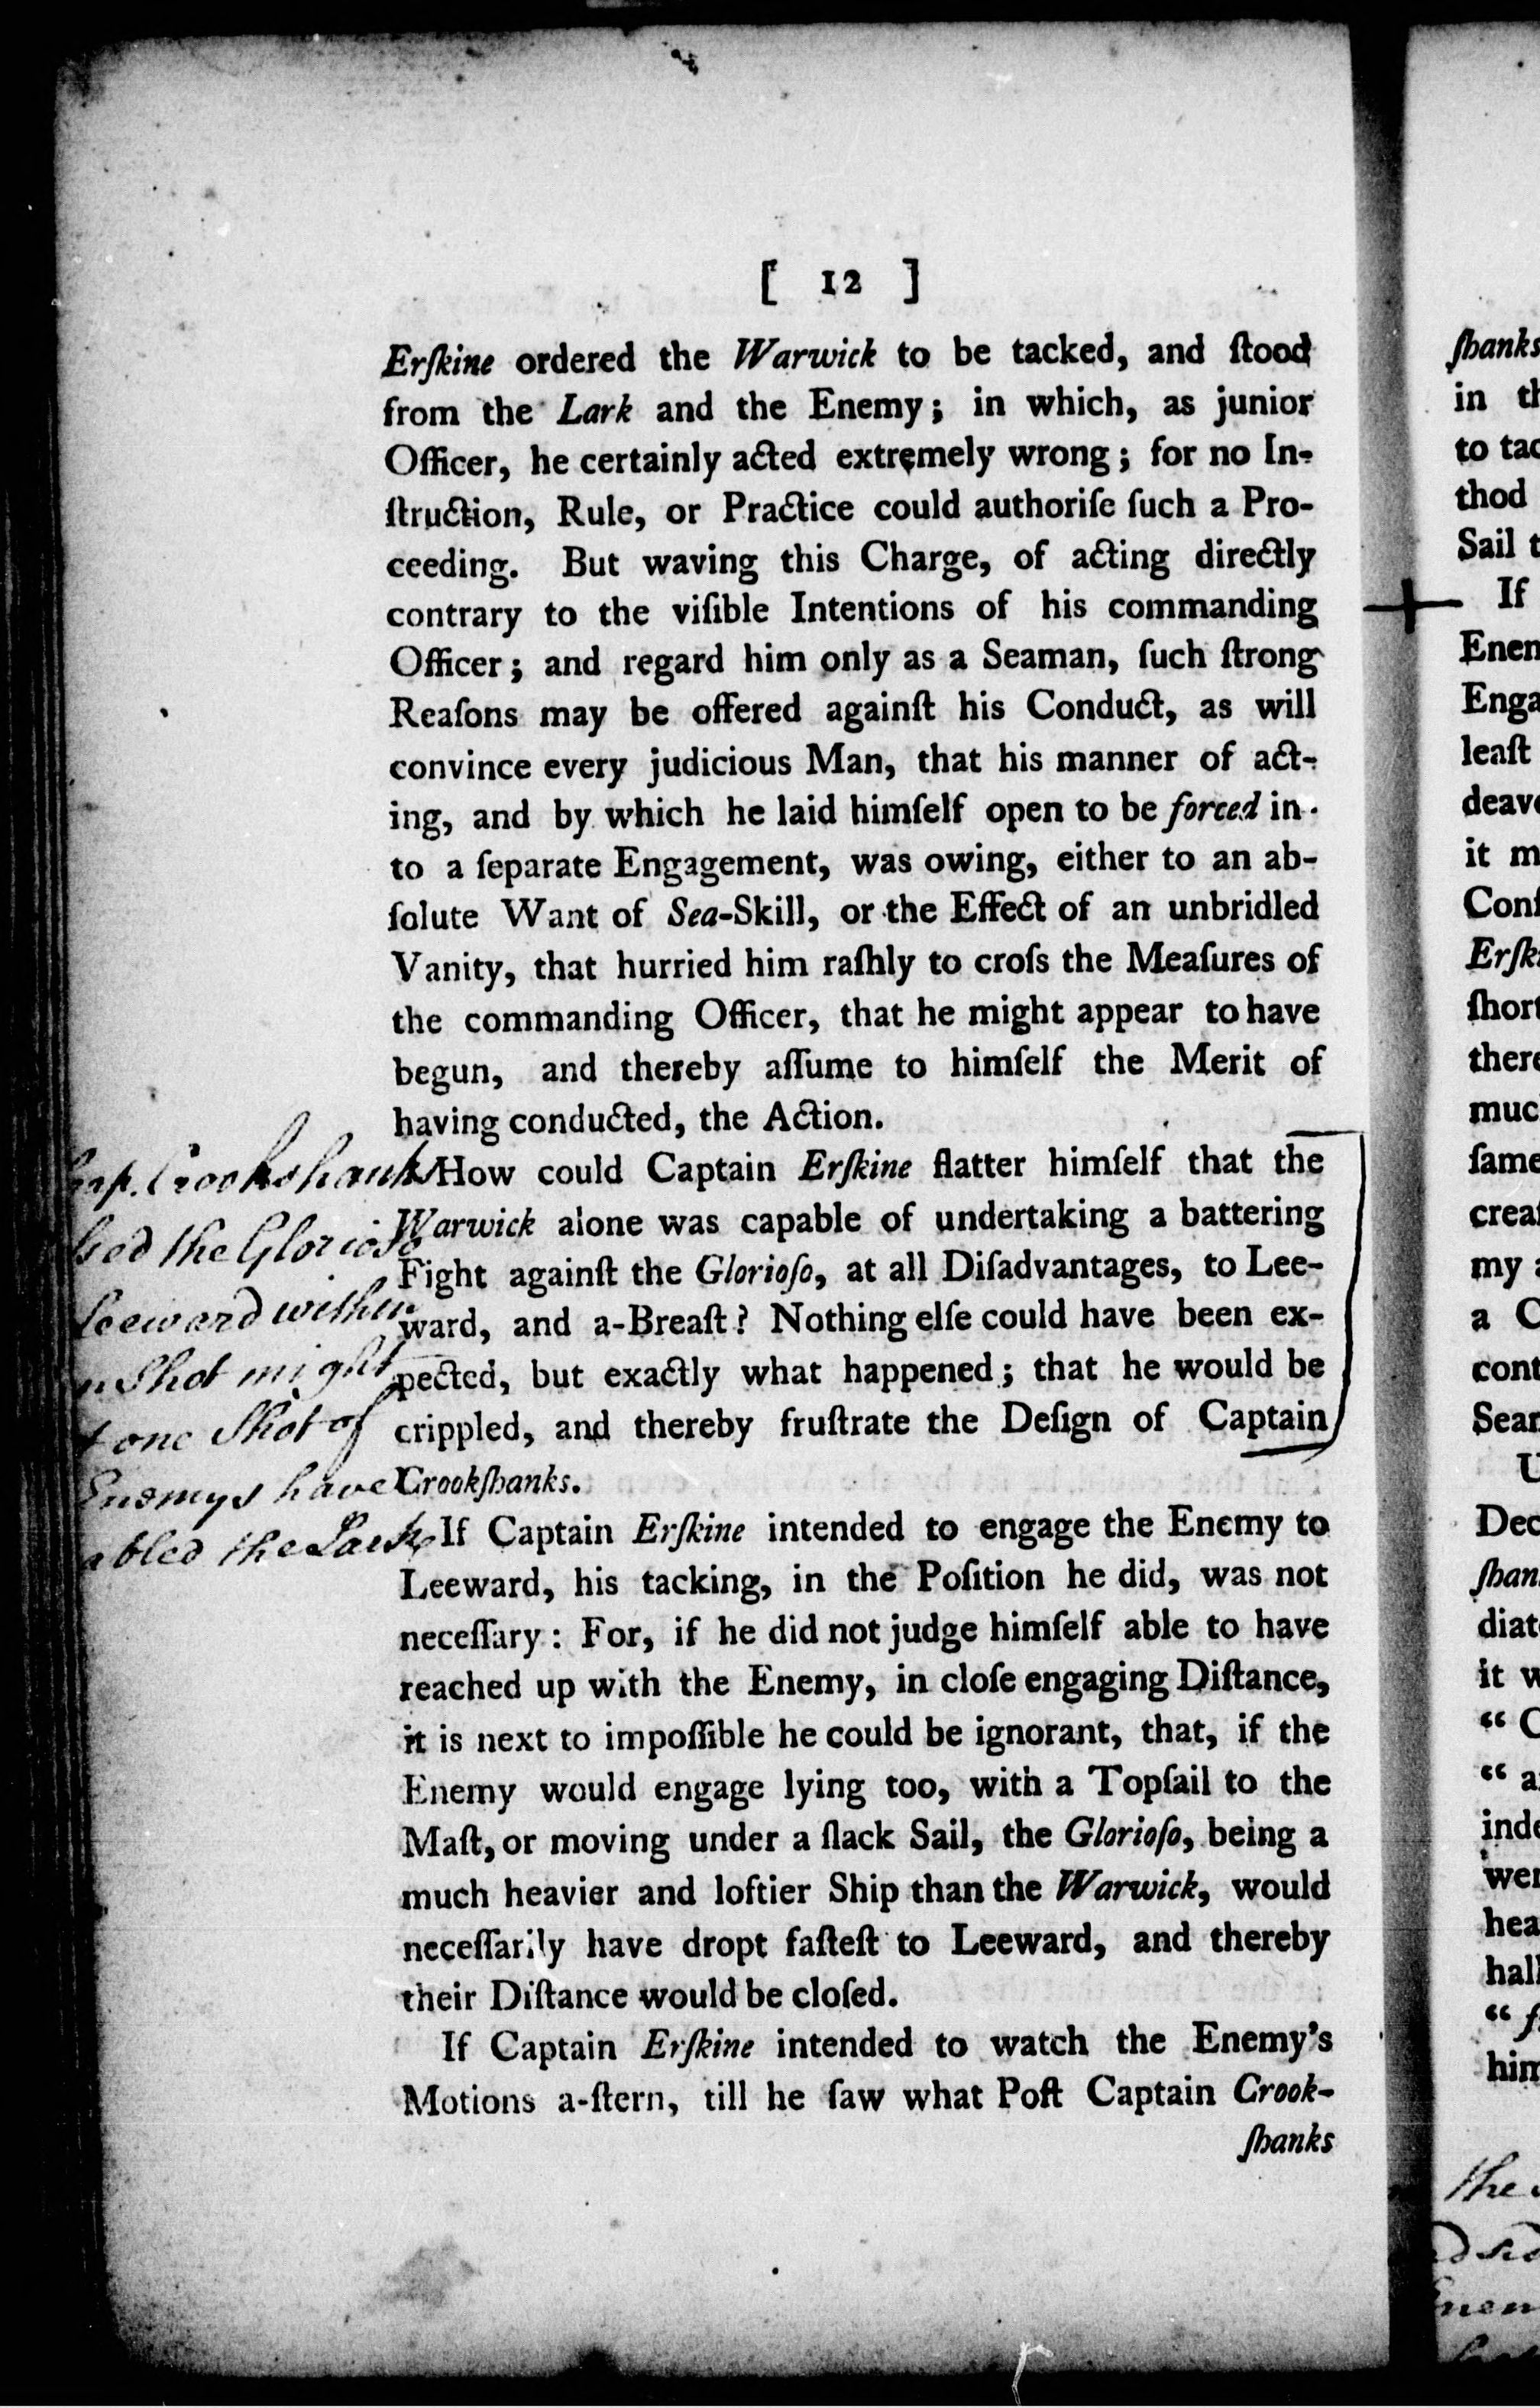 [ 12 ]
Erſkine ordered the Warwick to be tacked, and ſtood
from the Lark and the Enemy; in which, as junior
Officer, he certainly acted extremely wrong; for no In-
ſtruction, Rule, or Practice could authoriſe ſuch a Pro-
ceeding. But waving this Charge, of acting directly
contrary to the viſible Intentions of his commanding
Officer; and regard him only as a Seaman, ſuch ſtrong
Reaſons may be offered againſt his Conduct, as will
convince every judicious Man, that his manner of act-
ing, and by which he laid himſelf open to be forced in-
to a ſeparate Engagement, was owing, either to an ab-
ſolute Want of Sea-Skill, or the Effect of an unbridled
Vanity, that hurried him raſhly to croſs the Meaſures of
the commanding Officer, that he might appear to have
begun, and thereby aſſume to himſelf the Merit of
having conducted, the Action.
How could Captain Erſkine flatter himſelf that the
Warwick alone was capable of undertaking a battering
Fight againſt the Glorioſo, at all Diſadvantages, to Lee-
ward, and a-Breaſt? Nothing elſe could have been ex-
pected, but exactly what happened; that he would be
crippled, and thereby fruſtrate the Deſign of Captain
Crookſhanks.
If Captain Erſkine intended to engage the Enemy to
Leeward, his tacking, in the Poſition he did, was not
neceſſary: For, if he did not judge himſelf able to have
reached up with the Enemy, in cloſe engaging Diſtance,
it is next to impoſſible he could be ignorant, that, if the
Enemy would engage lying too, with a Topſail to the
Maſt, or moving under a ſlack Sail, the Glorioſo, being a
much heavier and loftier Ship than the Warwick, would
neceſſarily have dropt faſteſt to Leeward, and thereby
their Diſtance would be cloſed.
If Captain Erſkine intended to watch the Enemy's
Motions a-ſtern, till he ſaw what Poſt Captain Crook-
ſhanks
Crookshanks
the Glorioso
leeward within
Shot might
one Shot of
Enemys have
abled the Lark
ſhanks
in
to
thod
Sail
If
leaſt
it
a
"
"
"
the